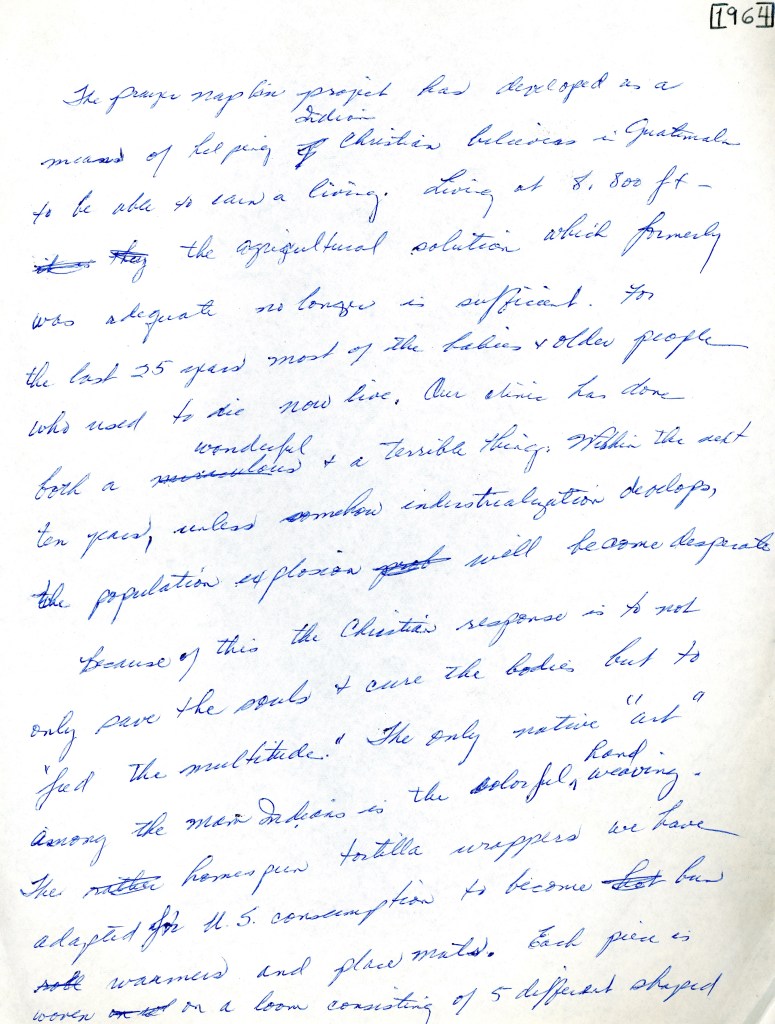 [1964]
The prayer napkin project has developed as a
Indian
means of helping of Christian believers in Guatemala
to be able to earn a living. Living at 8,800 ft -
it is they the agricultural solution which formerly
was adequate no longer is sufficient. For
the last 25 years most of the babies & older people
who used to die now live. Our clinic has done
wonderful
both a miraculous & a terrible thing. Within the next
ten years, unless somehow industrialization develops,
the population explosion will become desperate
Because of this the Christian response is to not
only save the souls & cure the bodies but to
"feed the multitude." The only native "art"
hand
among the mam Indians is the colorful, weaving.
The rather homespun tortilla wrappers we have
adapted for U.S. consumption to become hot bun
roll warmers and place mats. Each piece is
woven on a loom consisting of 5 different shaped